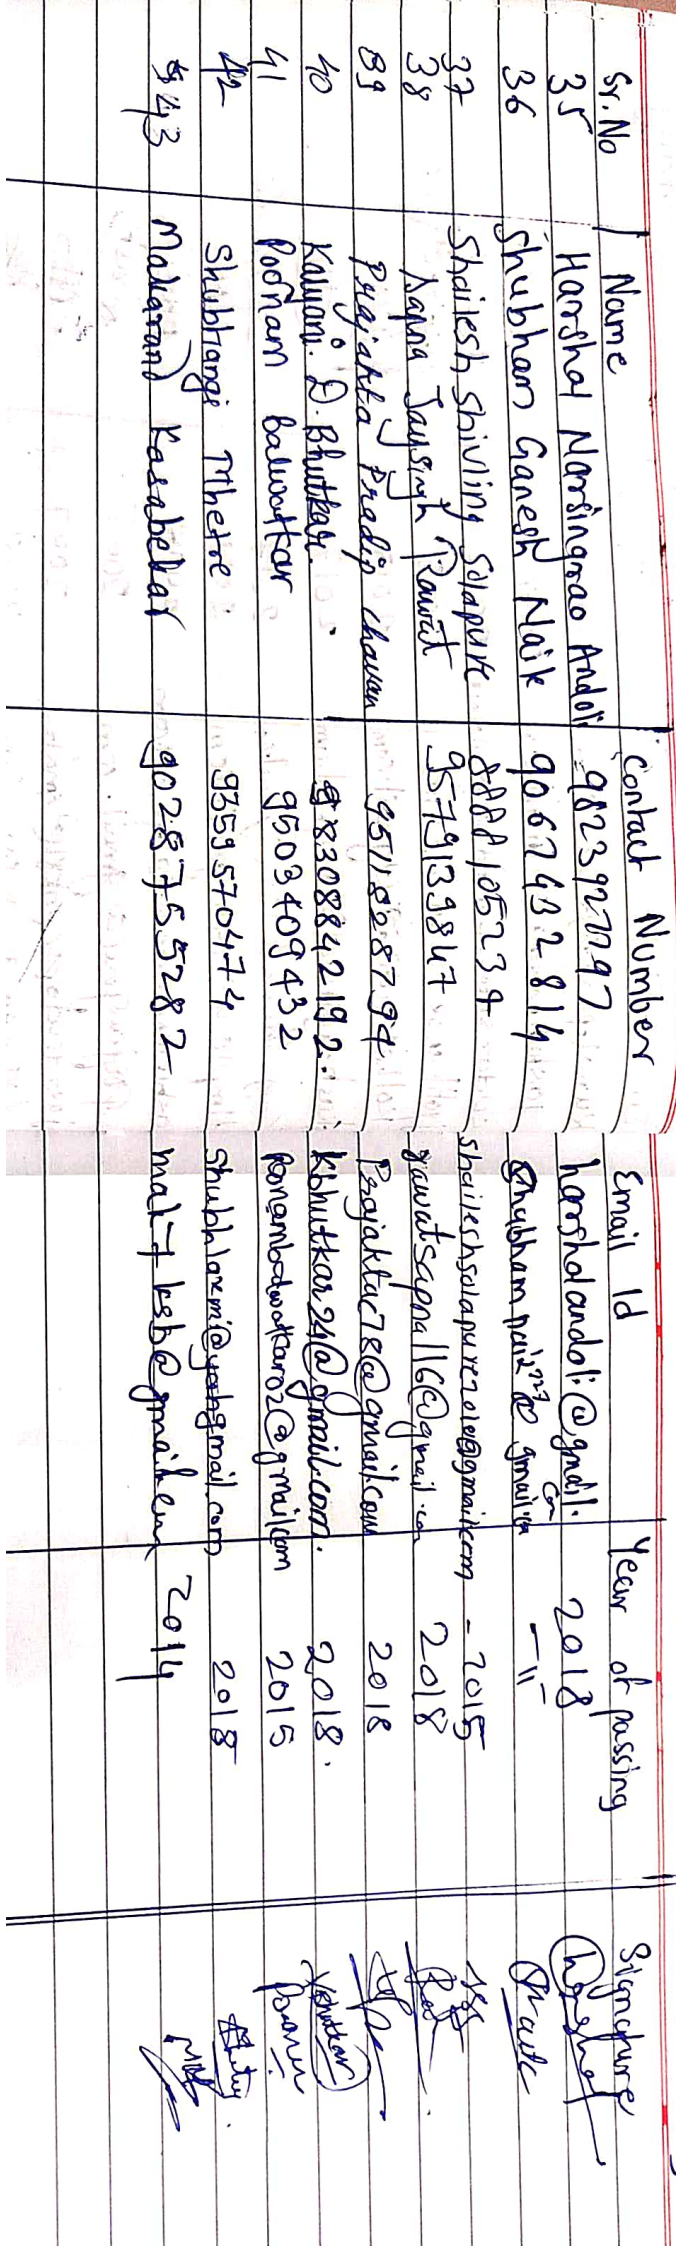 Sr. No Name Contact Number Email Id Year of passing Signature
35 Harshal Narsingrao Andoli 9823927797 harshalandoli@gmail.com 2018
36 Shubham Ganesh Naik 9067432814 @gmail.com -11-
37 Shailesh Shivling Solapure 8888105234 - 2015
38 Sapna Jaysingh Rawat 9579139847 rawatsapna116@gmail.com 2018
39 Prajakta Pradip chavan 9511828794 Prajaktac78@gmail.com 2018
40 Kalyani. D. Bhutkar. 8308842192. kbhutkar24@gmail.com. 2018.
41 Poonam balwatkar 9503409432 Poonambalwatkar02@gmail.com 2015 Poonam
42 Shubhangi Mhetre 9359570474 shubhlaxmi@gmail.com 2018
43 Makarand Kasabekar 9028755282 mak7ksb@gmail.com 2014